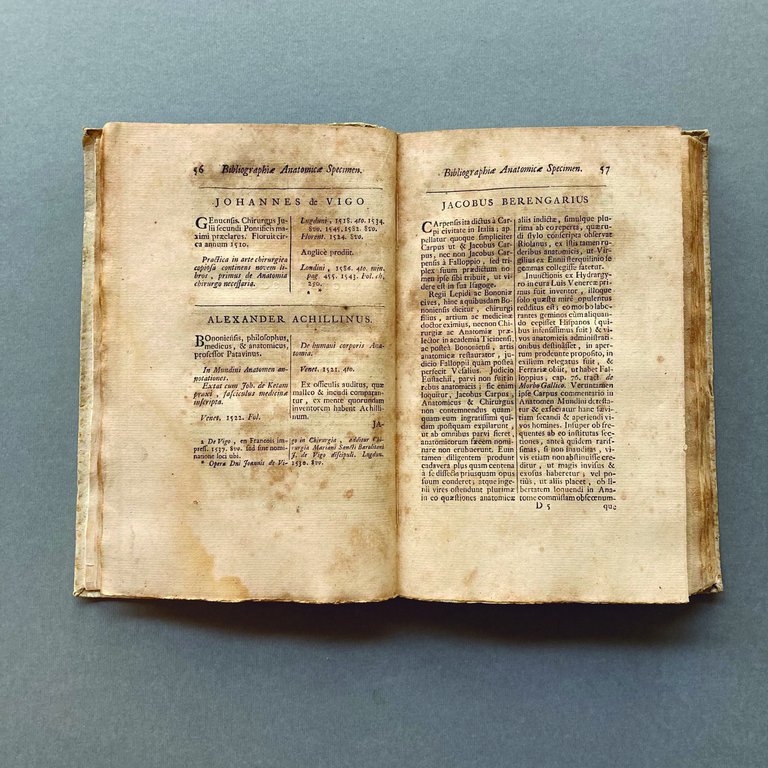 56 Bibliographiæ Anatomicæ Specimen.
JOHANNES de VIGO
Genuensis. Chirurgus Ju-
lii secundi Pontificis ma-
ximi præclarus. Floruit cir-
ca annum 1510.
Practica in arte chirurgica
copiosa continens novem li-
bros, primus de Anatomia
chirurgo necessaria.
Lugduni, 1518. 4to. 1534.
8vo. 1545. 1582. 8vo.
Florent. 1524. 8vo.
Anglicè prodiit.
Londini, 1586. 4to. min.
pag. 455. 1543. Fol. ch.
250.
a *
ALEXANDER ACHILLINUS.
Bononiensis, philosophus,
medicus, & anatomicus,
professor Patavinus.
In Mundini Anatomen an-
notationes.
Extat cum Joh. de Ketam
praxi, fasciculus medicinæ
inscripta.
Venet. 1522. Fol.
De humani corporis Ana-
tomia.
Venet. 1521. 4to.
Ex ossiculis auditus, quæ
malleo & incudi comparan-
tur, ex mente quorundam
inventorem habent Achilli-
num.
JA-
a De Vigo, en Francois im-
press. 1537. 8vo. sed sine nomi-
natione loci ubi.
* Opera Dni Joannis de Vi-
go in Chirurgia, additur Chi-
rurgia Mariani Sancti Barolitani
J. de Vigo discipuli. Lugdun.
1530. 8vo.
Bibliographiæ Anatomicæ Specimen. 57
JACOBUS BERENGARIUS
CArpensis ita dictus a Car-
pi civitate in Italia; ap-
pellatur quoque simpliciter
Carpus ut & Jacobus Car-
pus, nec non Jacobus Car-
pensis à Falloppio, sed tri-
plex suum prædictum no-
men ipse sibi tribuit, ut vi-
dere est in sua Isagoge.
Regii Lepidi ac Bononiæ
cives, hanc a quibusdam Bo-
noniensis dictus, chirurgiæ
filius, artium ac medicinæ
doctor eximius, necnon Chi-
rurgiæ ac Anatomiæ præ-
lector in academia Ticinensi,
ac postea Bononiensi, artis
anatomicæ restaurator, ju-
dicio Falloppii quam postea
perfecit Vesalius. Judicio
Eustachii, parvi non fuit in
rebus anatomicis; sic enim
loquitur, Jacobus Carpus,
Anatomicus & Chirurgus
non contemnendus quam-
quam eum ingratissimi qui-
dam ipsumquam expilarunt,
ut ab omnibus parvi fieret,
anatomicorum fæcem nomi-
nare non erubuerunt. Eum
tamen diligentem prodiunt
cadavera plus quam centena
à se dissecta priusquam opus
suum conderet; atque inge-
nii vires ostendunt plurimæ
in eo quæstiones anatomicæ
aliis indictæ, simulque pluri-
ma ab eo reperta, quæ rudi
dissylo conscripta observat
Riolanus, ex istis tamen ru-
deribus anatomicis, ut Vir-
gilius ex Ennii sterquilinio se
gemmas collegisse fatetur.
Inunctionis ex Hydrargy-
ro in cura Luis Venereæ pri-
mus fuit inventor, illoque
solo quæstu mirè opulentus
redditus est; eo morbo labo-
rantes geminos cùm aliquan-
do cepisset Hispanos (quibus
infensissimus fuit) & vi-
vos anatomicis administrati-
onibus destinâsset, in aper-
tum prodeunte proposito, in
exilium relegatus fuit, &
Ferrariæ obiit, ut habet Fal-
loppius, cap. 76. tract. de
Morbo Gallico. Verumtamen
ipse Carpus commentario in
Anatomen Mundini detesta-
tur & execratur hanc sævi-
tiem secandi & aperiendi vi-
vos homines. Insuper ob fre-
quentes ab eo institutas sec-
tiones, antea quidem rarissi-
mas, si non inauditas, vi-
vis etiam non abstinuisse cre-
ditur, ut magis invisus &
exosus haberetur, vel po-
tiùs, ut aliis placet, ob li-
bertatem loquendi in Ana-
tome commissam obscœnum.
D 5 que